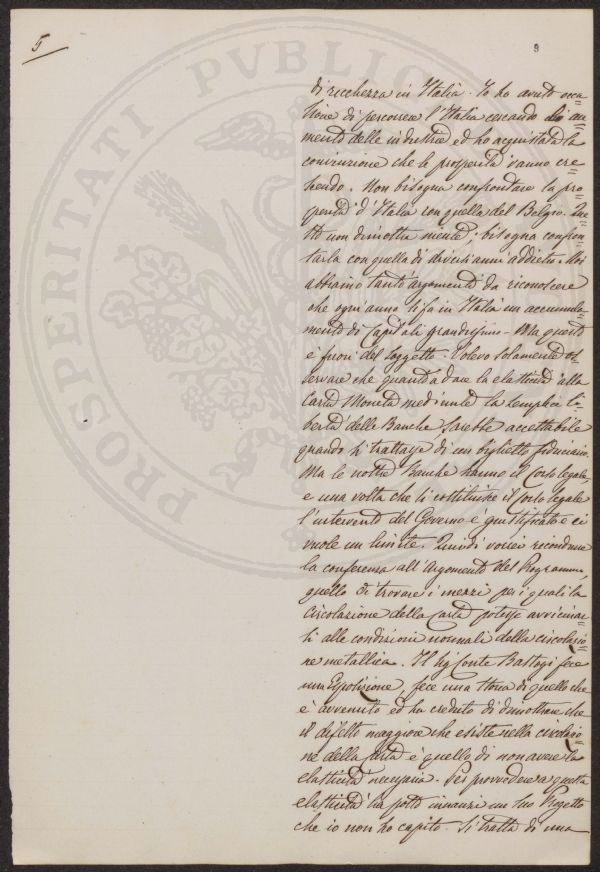 5
9
di ricchezza in Italia. Io ho avuto occa=
sione di percorrere l'Italia cercando au=
mento delle industrie ed ho acquistata la
convinzione che le prosperità vanno cre=
scendo. Non bisogna confrontare la pro=
sperità d'Italia con quella del Belgio.
non dimostra niente; bisogna confron=
tarla con quella di diversi anni addietro. Noi
abbiamo tanti argomenti da riconoscere
che ogni anno si fa in Italia un accumula=
mento di Capitali grandissimo - Ma questo
è fuori del soggetto. Volevo solamente os=
servare che quanto a dare la elasticità alla
Carta Moneta mediante la semplice li=
bertà delle Banche sarebbe accettabile
quando si trattasse di un biglietto fiduciario,
Ma le nostre Banche hanno il Corso legale,
e una volta che si costituisce il Corso legale
l'intervento del Governo è giustificato e ci
vuole un limite. Quindi vorrei ricondurre
la conferenza all'Argomento del Programma,
quello di trovare i mezzi per i quali la
Circolazione della Carta potesse avvicinar=
si alle condizioni normali della circolazio=
ne metallica. Il Sig. Conte Bastogi fece
una Esposizione, fece una storia di quello che
è avvenuto ed ha creduto di dimostrare che
il difetto maggiore che esiste nella circolazio=
ne della Carta è quello di non avere la
elasticità necessaria. Per provvedere a questa
elasticità ha posto innanzi un suo Progetto
che io non ho capito. Si tratta di una
PROSPERITATI PVBLIC